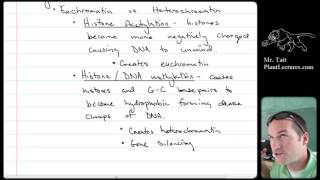 • Euchromatin vs Heterochromatin
• Histone Acetylation - histones
become more negatively charged
causing DNA to unwind.
• Creates euchromatin
• Histone / DNA methylation - causes
histones and G-C base pairs to
become hydrophobic forming dense
clumps of DNA.
• Creates heterochromatin
• Gene silencing
Mr. Tait
PlantLectures.com